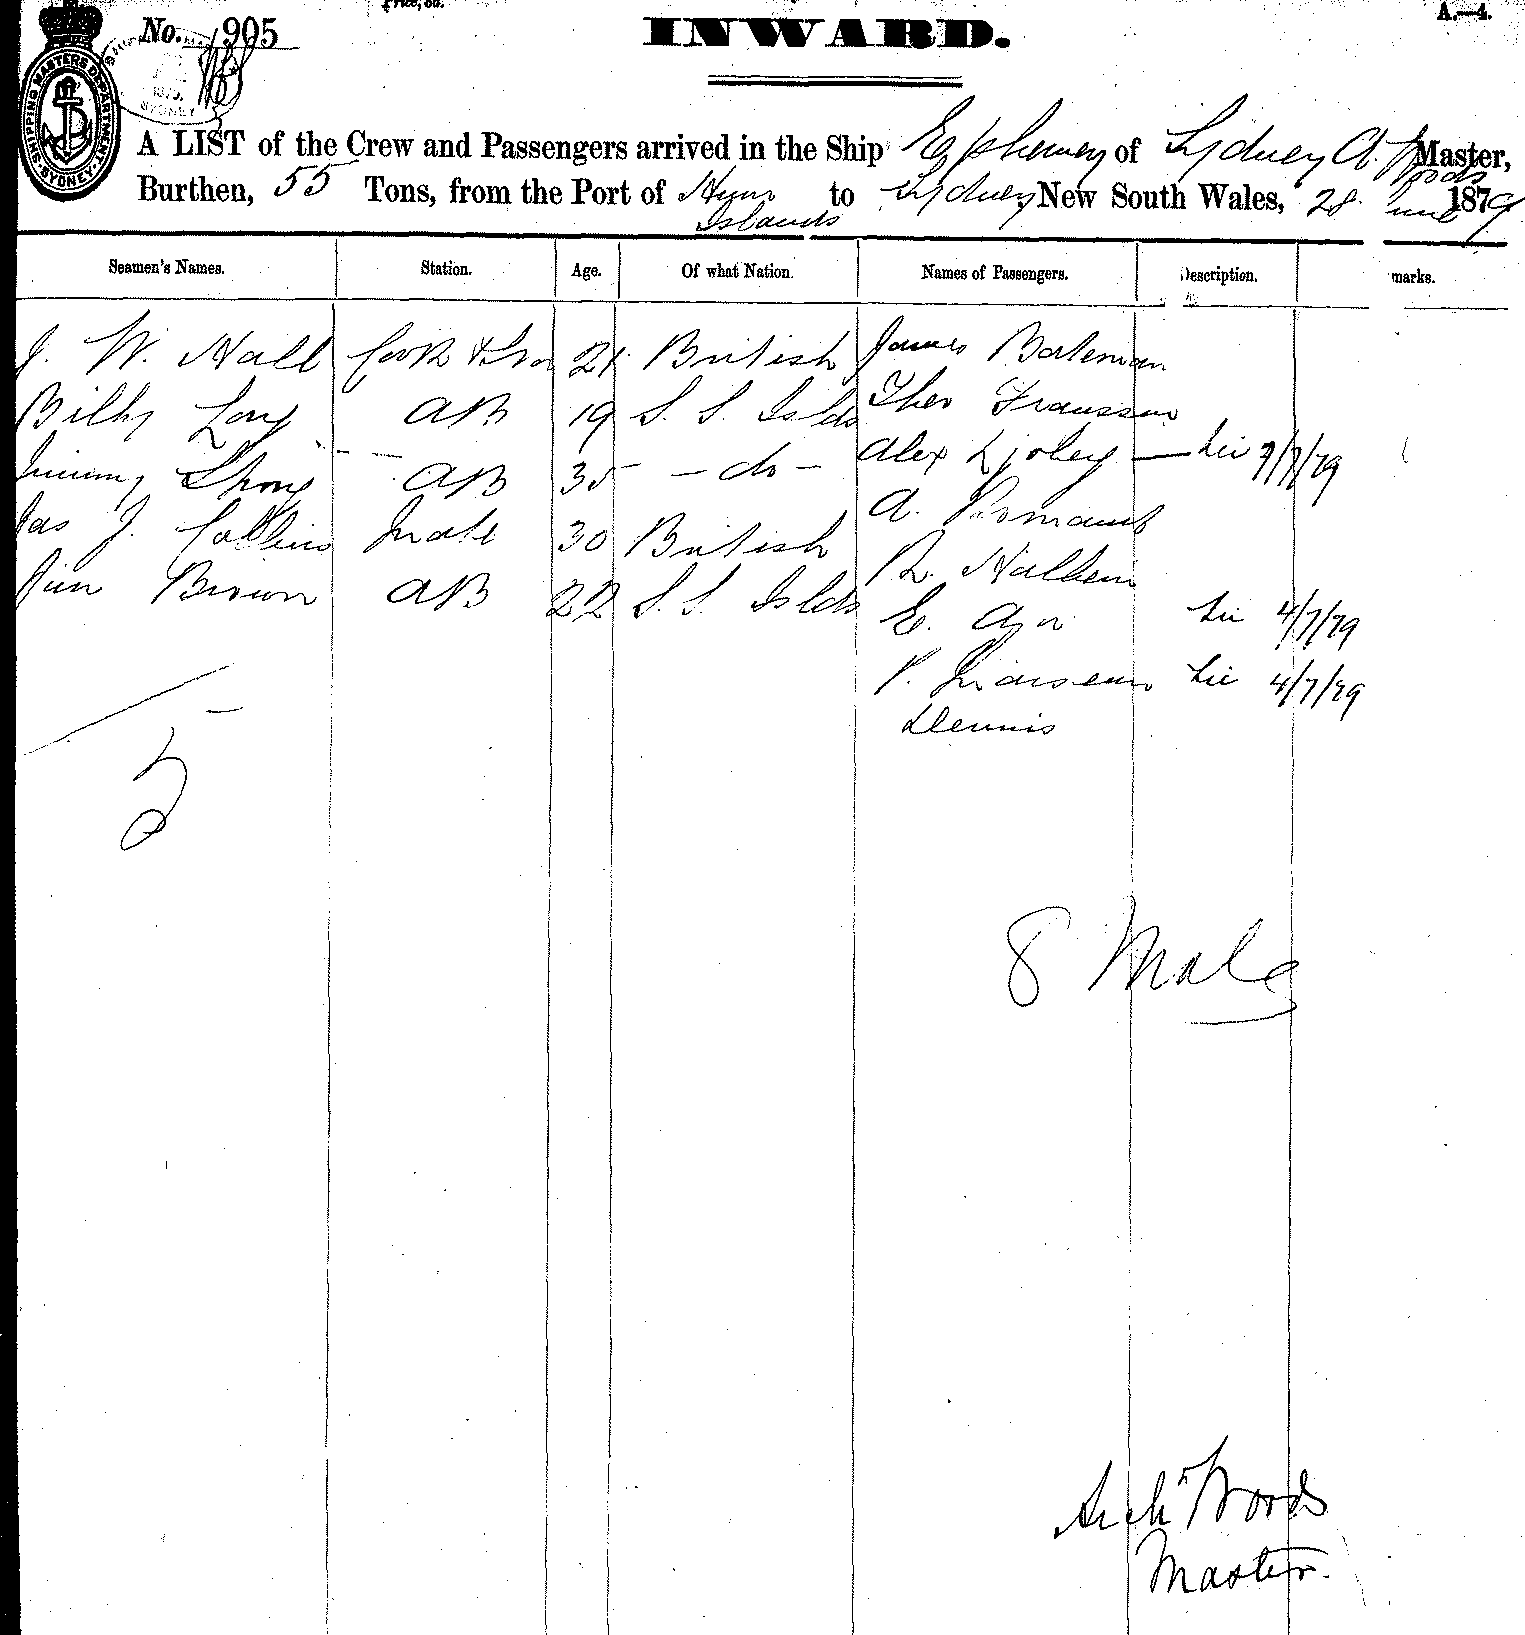 A.—4.
No. 905
INWARD.
SHIPPING MASTERS DEPARTMENT. SYDNEY.
SYDNEY
A LIST of the Crew and Passengers arrived in the Ship of Sydney A. Woods Master,
Burthen, 55 Tons, from the Port of Islands to Sydney, New South Wales, 28 June 1879
Seamen's Names. Station. Age. Of what Nation. Names of Passengers. Description. marks.
J. W. Hall Cook & 21 British James Bateman
Billy Long AB 19 S. S. Islds Theo
Jimmy AB 35 - do - Alex — Lie 7/7/79
Jas J. Collins Mate 30 British A.
Jim Brown AB 22 S. S. Islds
E. Lie 4/7/79
P. Lie 4/7/79
Dennis
5
8 Male
Archd Woods
Master.